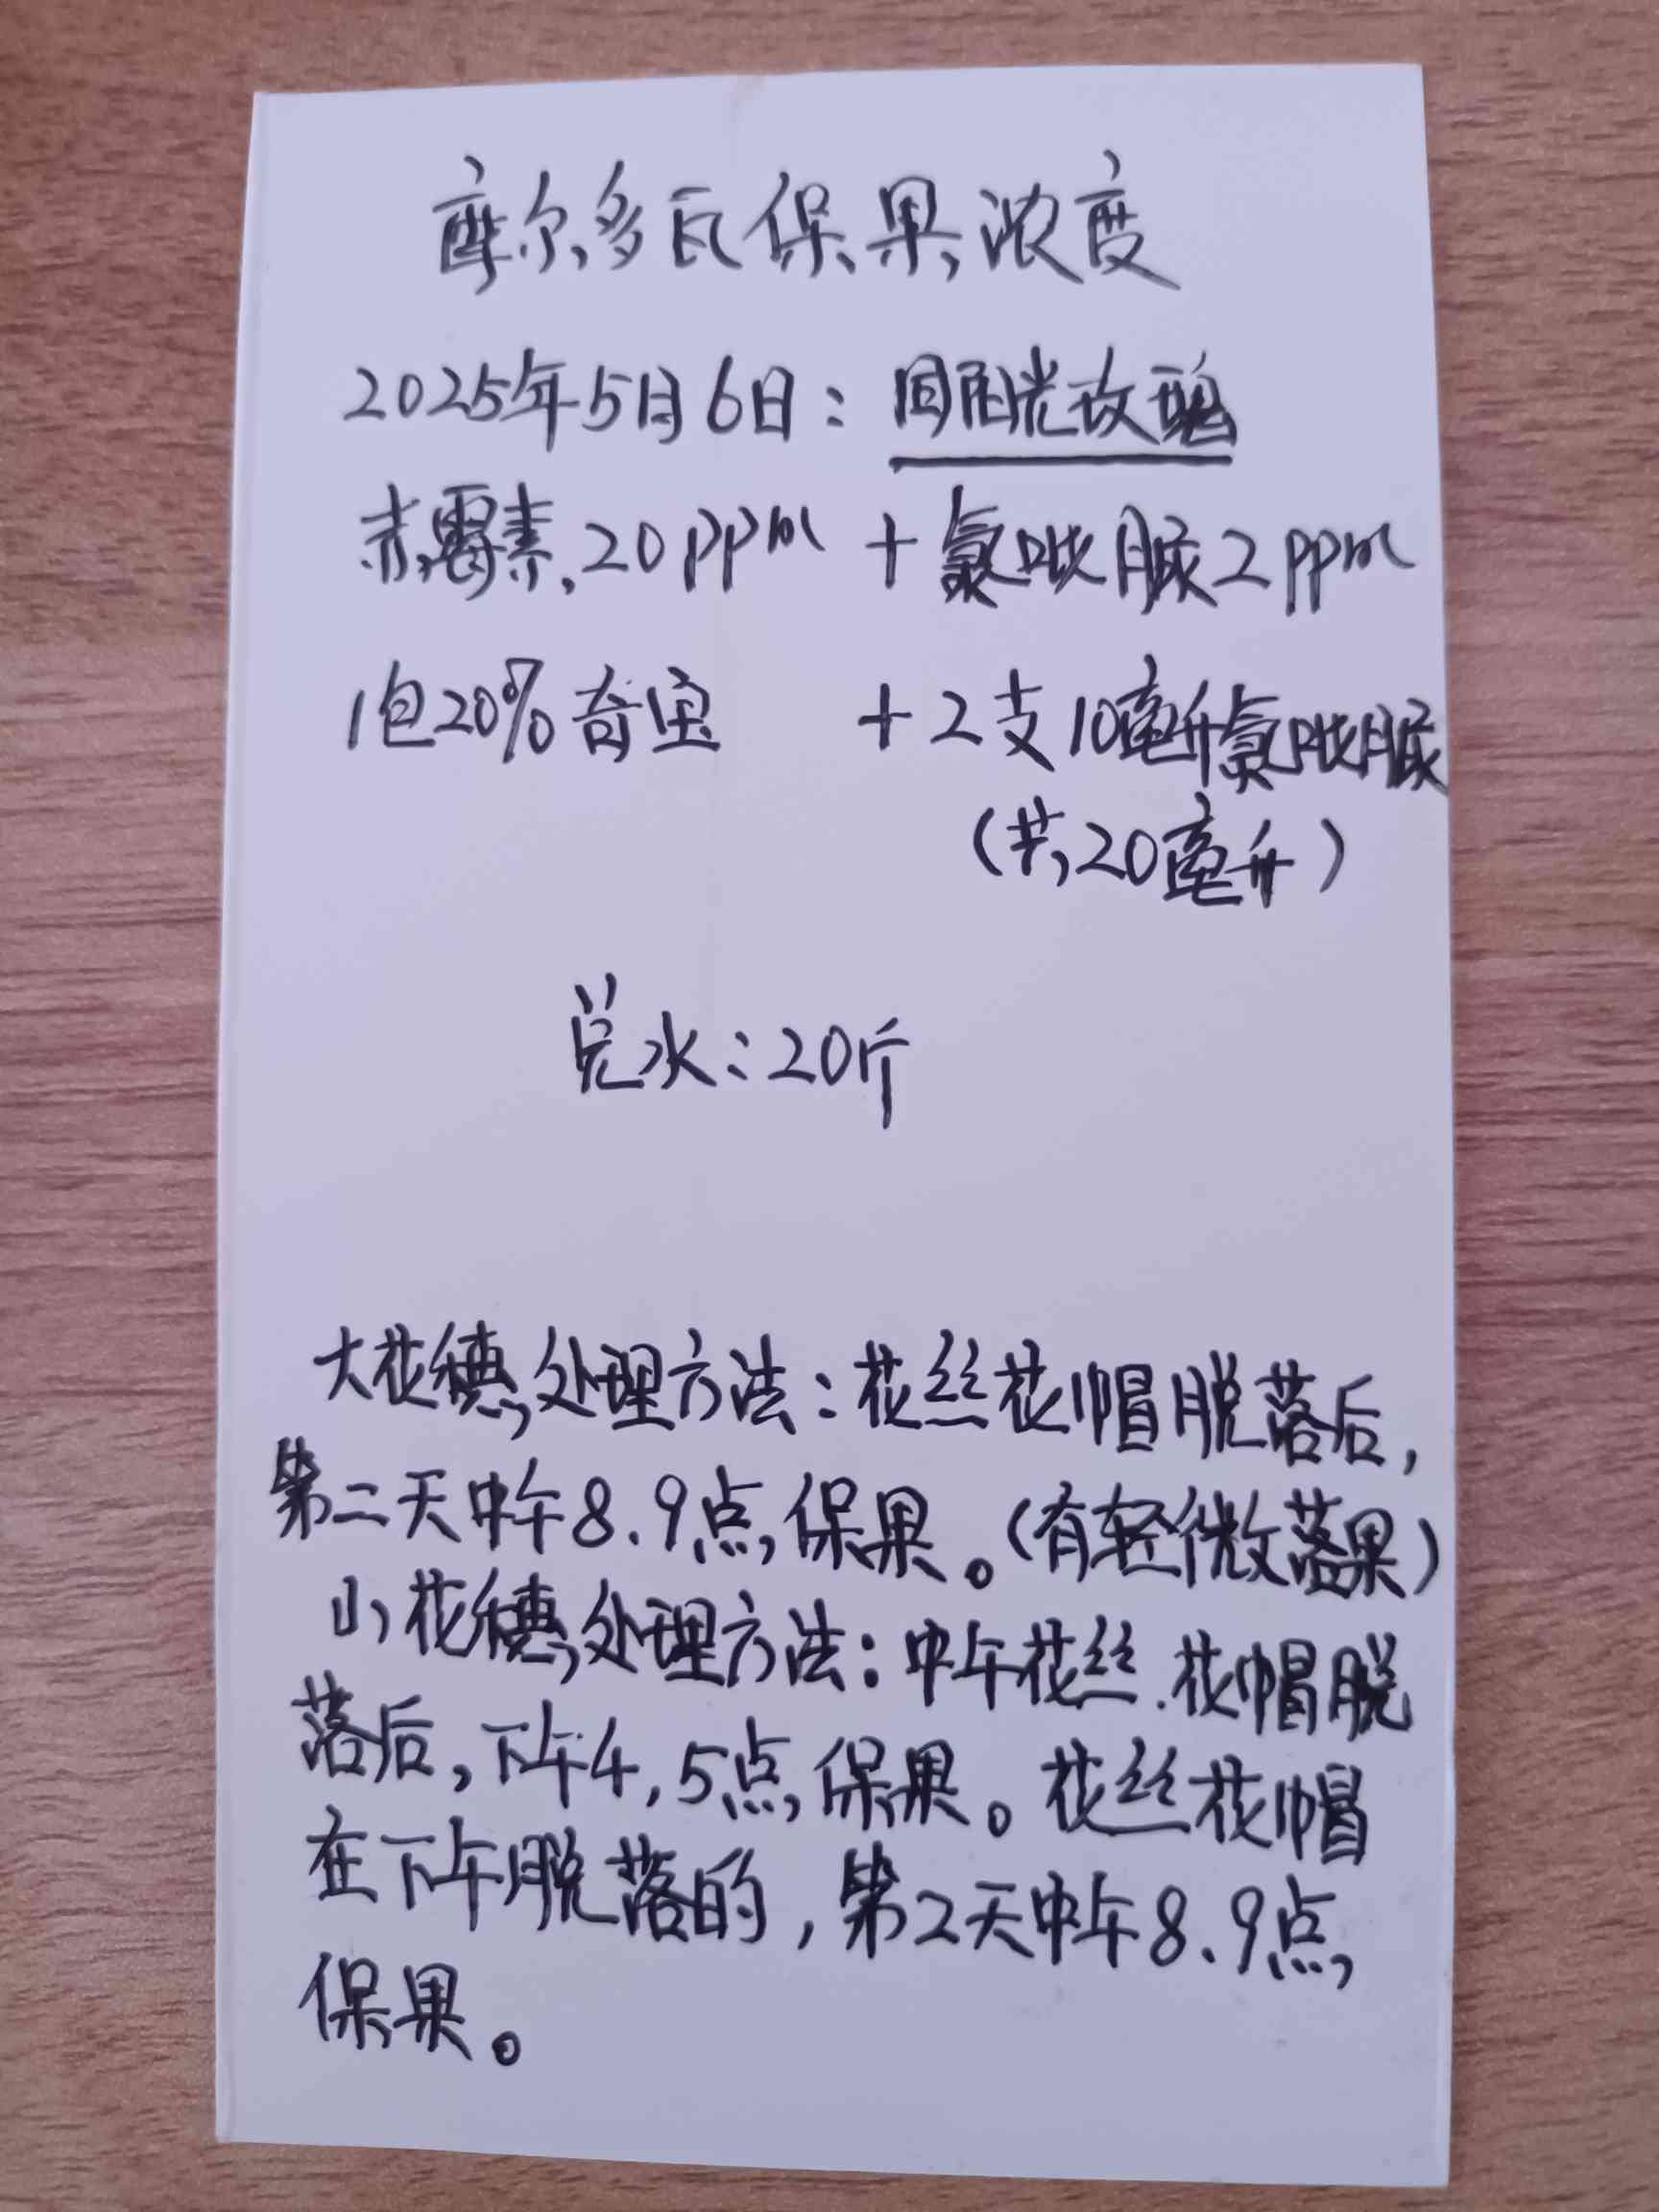 摩尔多瓦保果浓度
2025年5月6日：同阳光玫瑰
赤霉素.20ppm + 氯吡脲2ppm
1包20%奇宝 + 2支10毫升氯吡脲
（共20毫升）
兑水：20斤
大花穗处理方法：花丝花帽脱落后，
第二天中午8.9点保果。（有轻微落果）
小花穗处理方法：中午花丝.花帽脱
落后，下午4，5点保果。花丝花帽
在下午脱落的，第2天中午8、9点
保果。